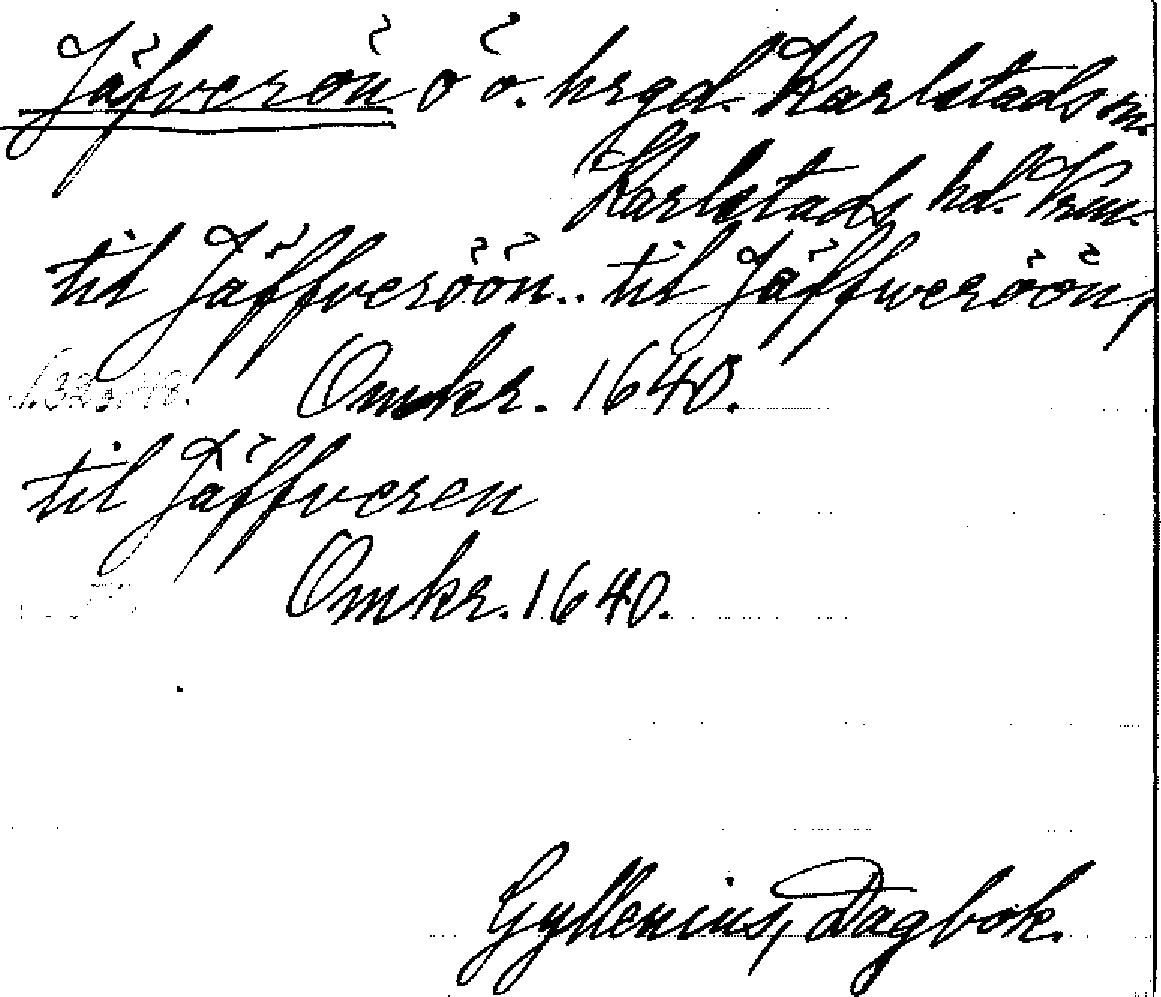 Jäfverön ö o. hrgd. Karlstads sn.
Karlstads hd. Vrm.
til Jäffveröön.. til Jäffweröön,
Omkr. 1640.
til Jäffveren
Omkr. 1640.
Gyllenius, Dagbok.